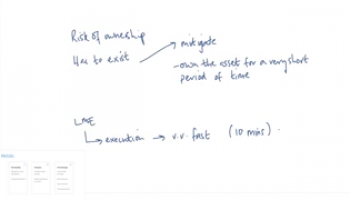 Risk of ownership
Has to exist → mitigate
– own the asset for a very short
period of time
LME
↳ execution → v.v. fast (10 mins)